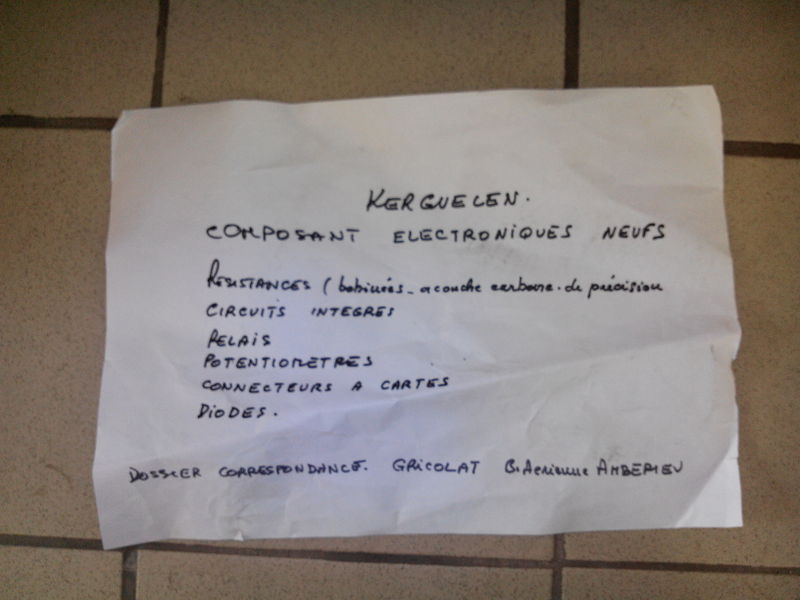 KERGUELEN.
COMPOSANT ELECTRONIQUES NEUFS
RESISTANCES ( bobinées - a couche carbone. de précision
CIRCUITS INTEGRES
RELAIS
POTENTIOMETRES
CONNECTEURS A CARTES
DIODES.
DOSSIER CORRESPONDANCE. GRICOLAT B. Aerienne AMBERIEU